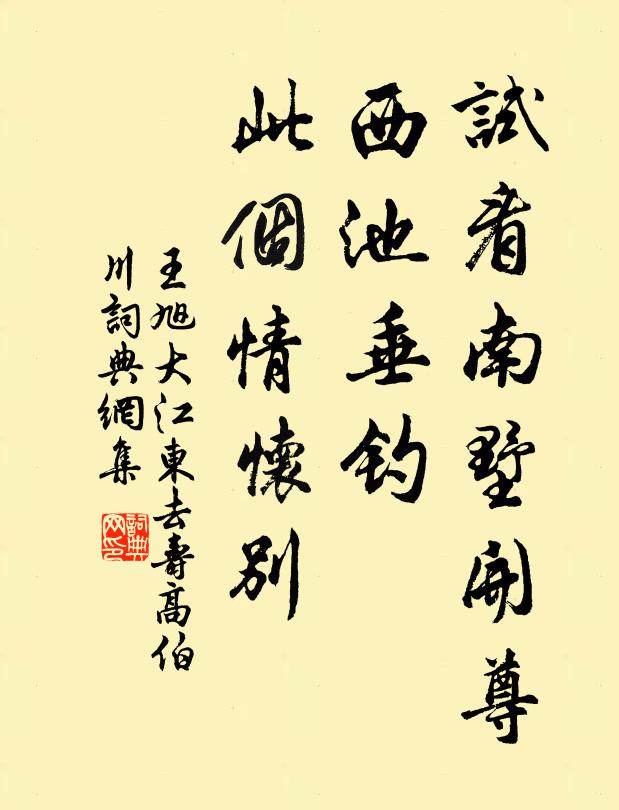 試看南墅開尊
西池垂釣
此個情懷別
王旭大江東去壽高伯
川詞典網集
詞典
网印